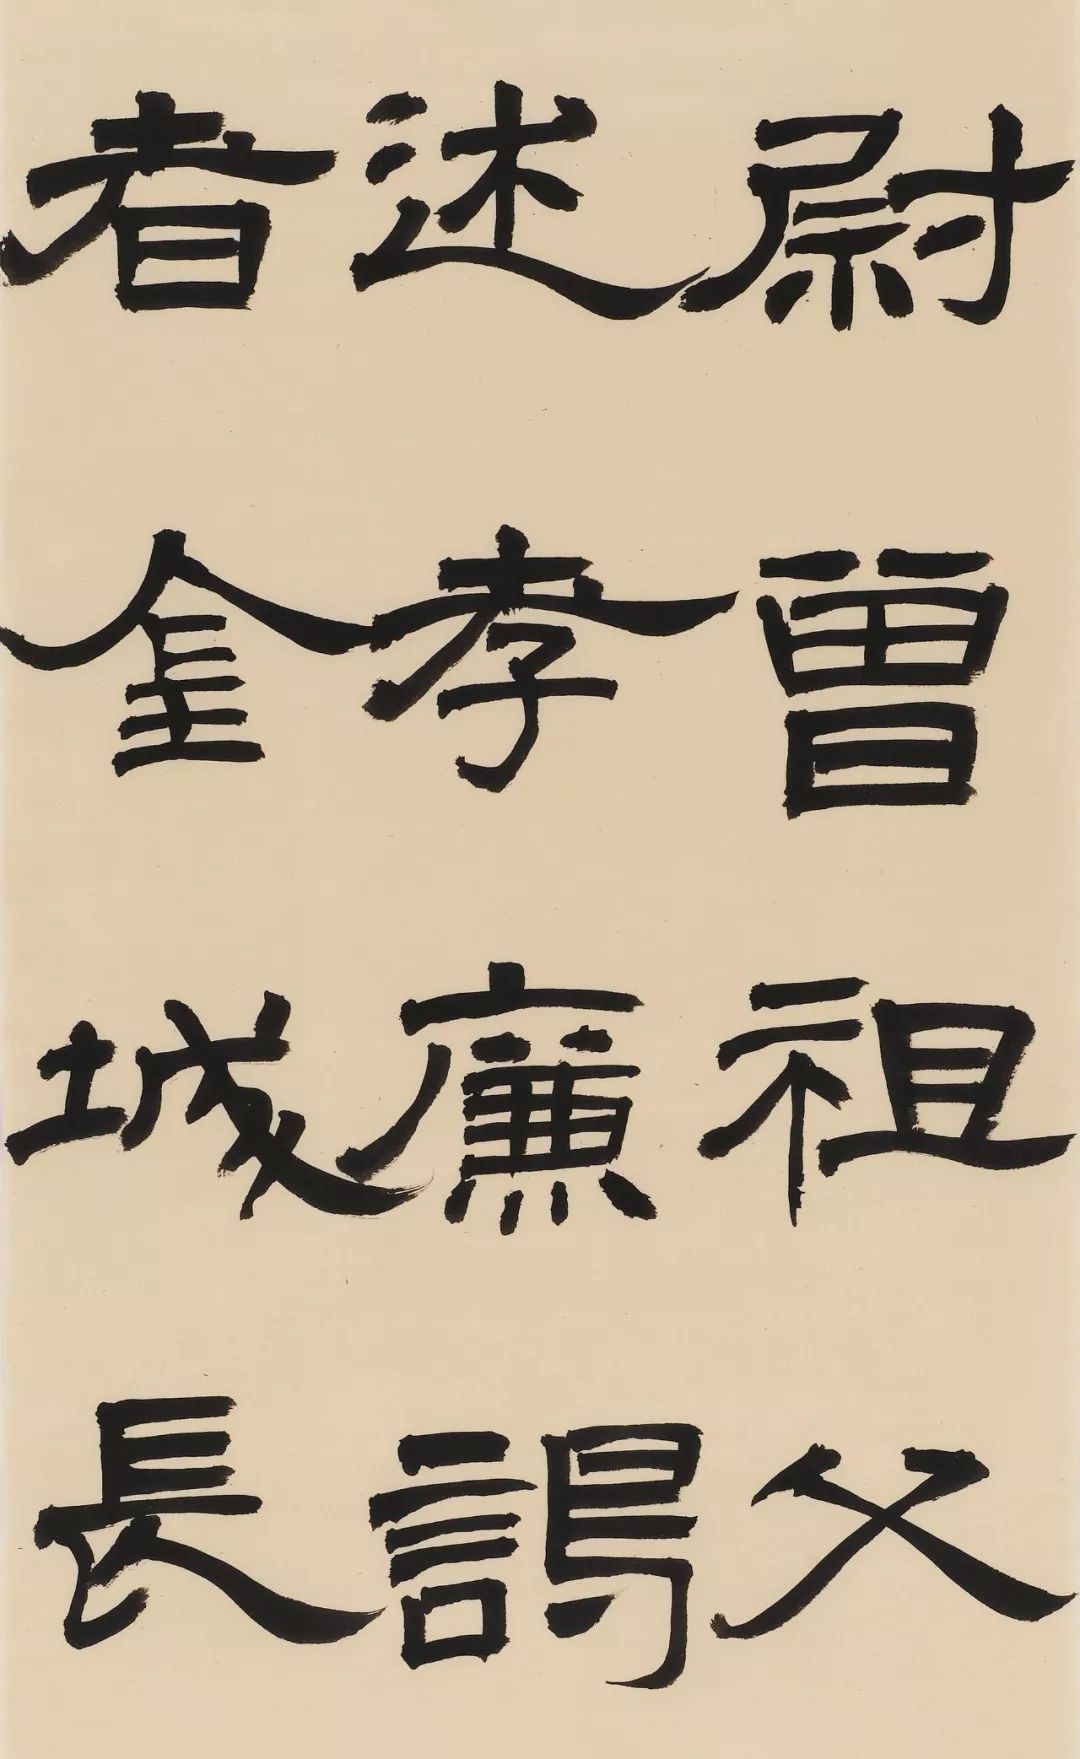 尉曾祖父
述孝廉謁
者金城長